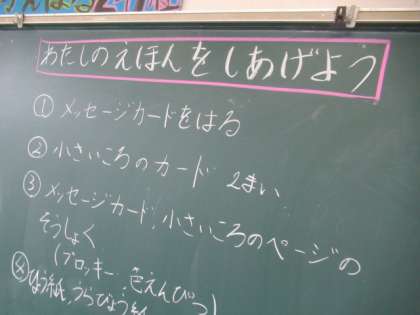 わたしのえほんをしあげよう
① メッセージカードをはる
② 小さいころのカード 2まい
③ メッセージカード、小さいころのページの
そうしょく
(プロッキー、色えんぴつ)
④ ひょう紙、うらびょう紙